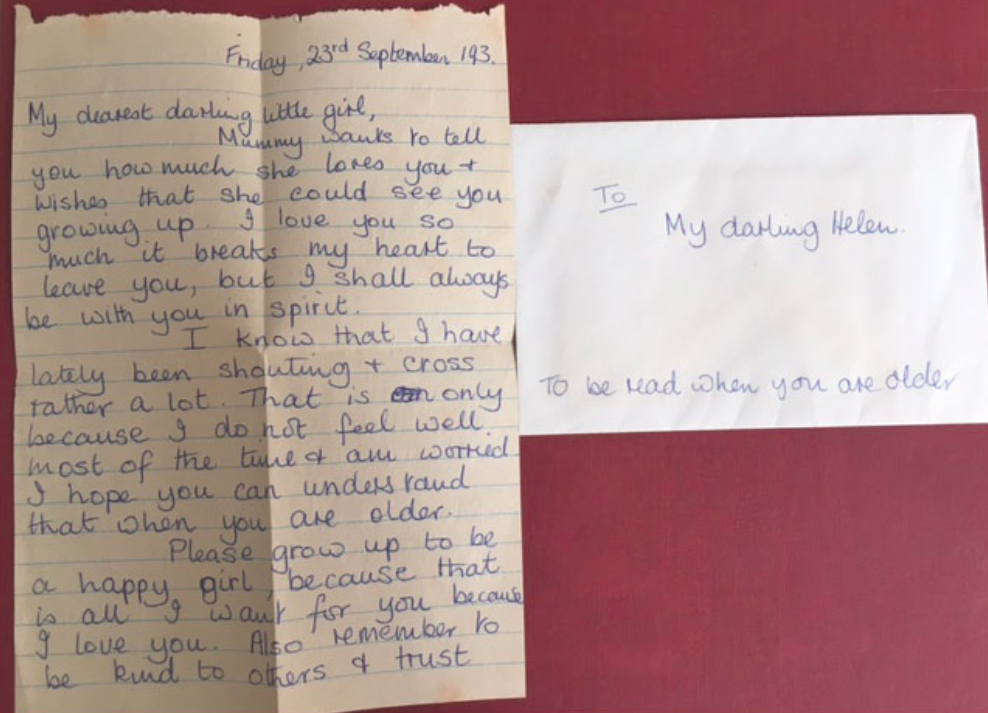 Friday, 23rd September 193.
My dearest darling little girl,
Mummy wants to tell
you how much she loves you +
wishes that she could see you
growing up. I love you so
much it breaks my heart to
leave you, but I shall always
be with you in spirit.
I know that I have
lately been shouting + cross
rather a lot. That is only
because I do not feel well
most of the time & am worried.
I hope you can understand
that when you are older.
Please grow up to be
a happy girl, because that
is all I want for you because
I love you. Also remember to
be kind to others & trust
To
My darling Helen.
To be read when you are older